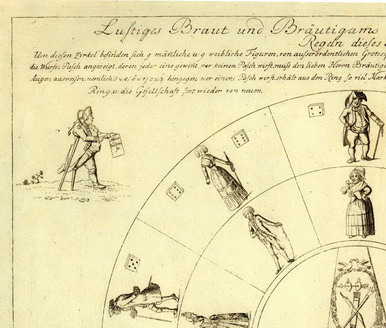 Lustiges Braut und Bräutigams
Regeln dieses
Um diesen Zirckel befinden sich 9 mänliche u 9 weibliche Figuren, von ausserordentlichen
die Würfel Pasch anzeigt, deren jeder eine gewiñt. wer keinen Pasch wirft, muß den lieben Herrn Bräutig
Augen ausweisen, nemlich hingegen wer einen Pasch wirft, erhält aus den Ring so viel
Ring, u die Gesellschaft fort wieder von neuem.